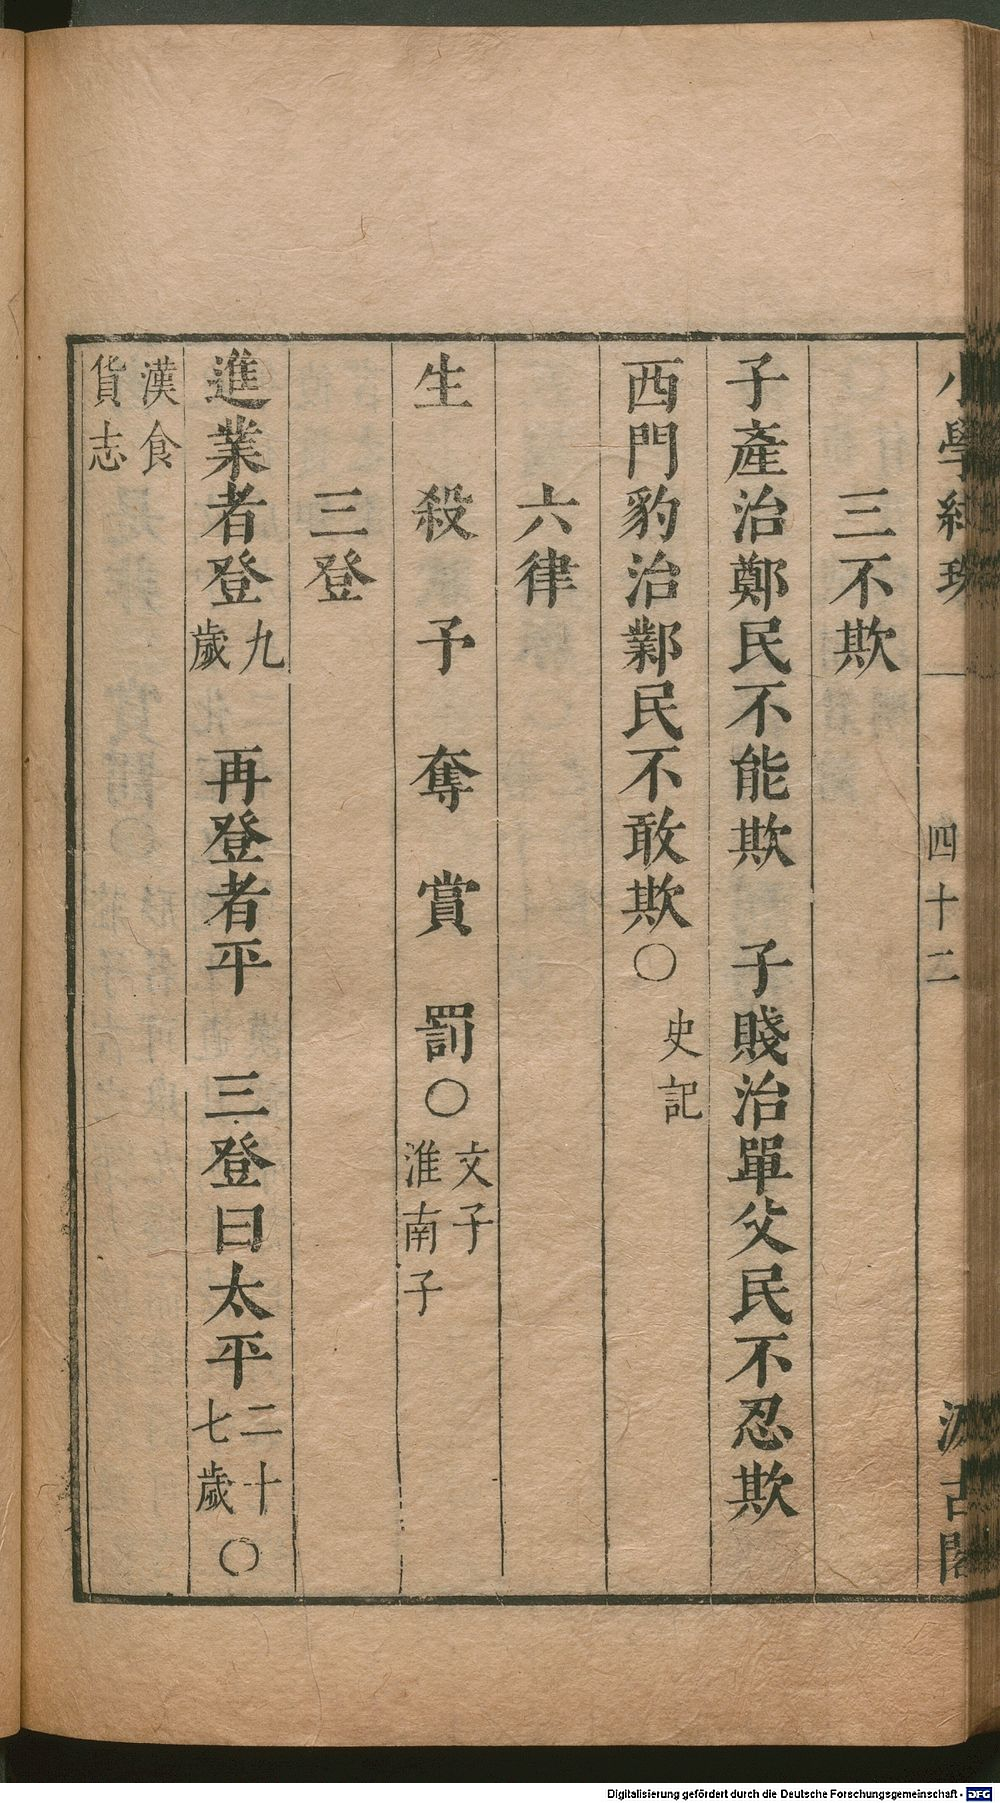 小學紺珠 四十二 汲古閣
三不欺
子產治鄭民不能欺 子賤治單父民不忍欺
西門豹治鄴民不敢欺○史記
六律
生 殺 予 奪 賞 罰○文子淮南子
三登
進業者登九歲 再登者平 三登曰太平二十七歲○
漢食貨志
Digitalisierung gefördert durch die Deutsche Forschungsgemeinschaft - DFG